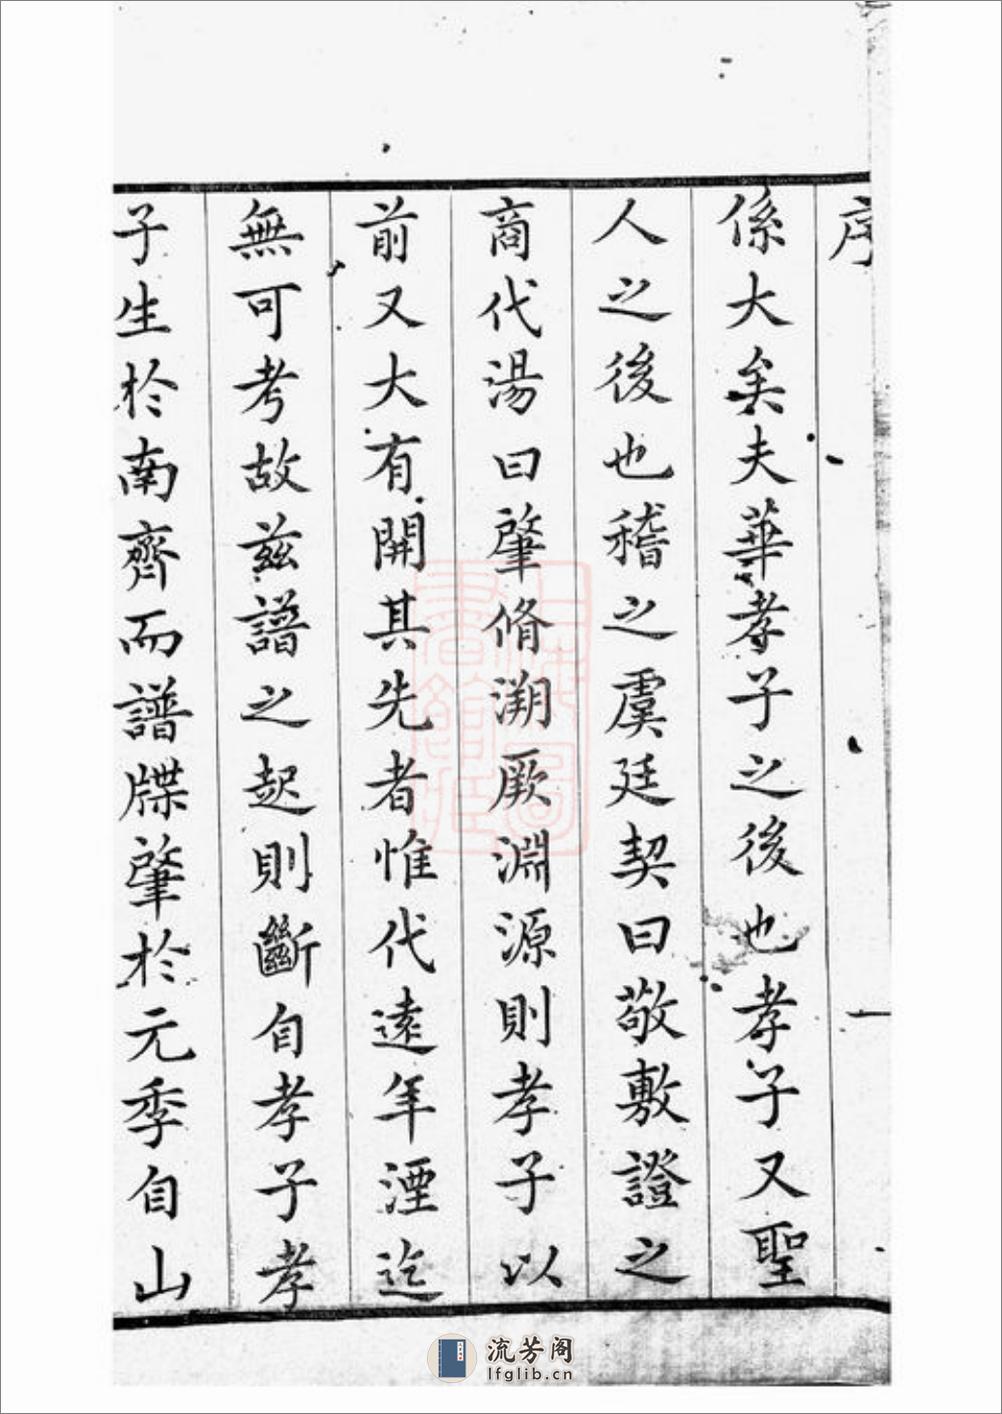 序 一
係大矣夫華孝子之後也孝子又聖
人之後也稽之虞廷契曰敬敷證之
商代湯曰肇脩溯厥淵源則孝子以
前又大有開其先者惟代遠年湮迄
無可考故茲譜之起則斷自孝子孝
子生於南齊而譜牒肇於元季自山
上海圖書館藏
流芳阁
lfglib.cn